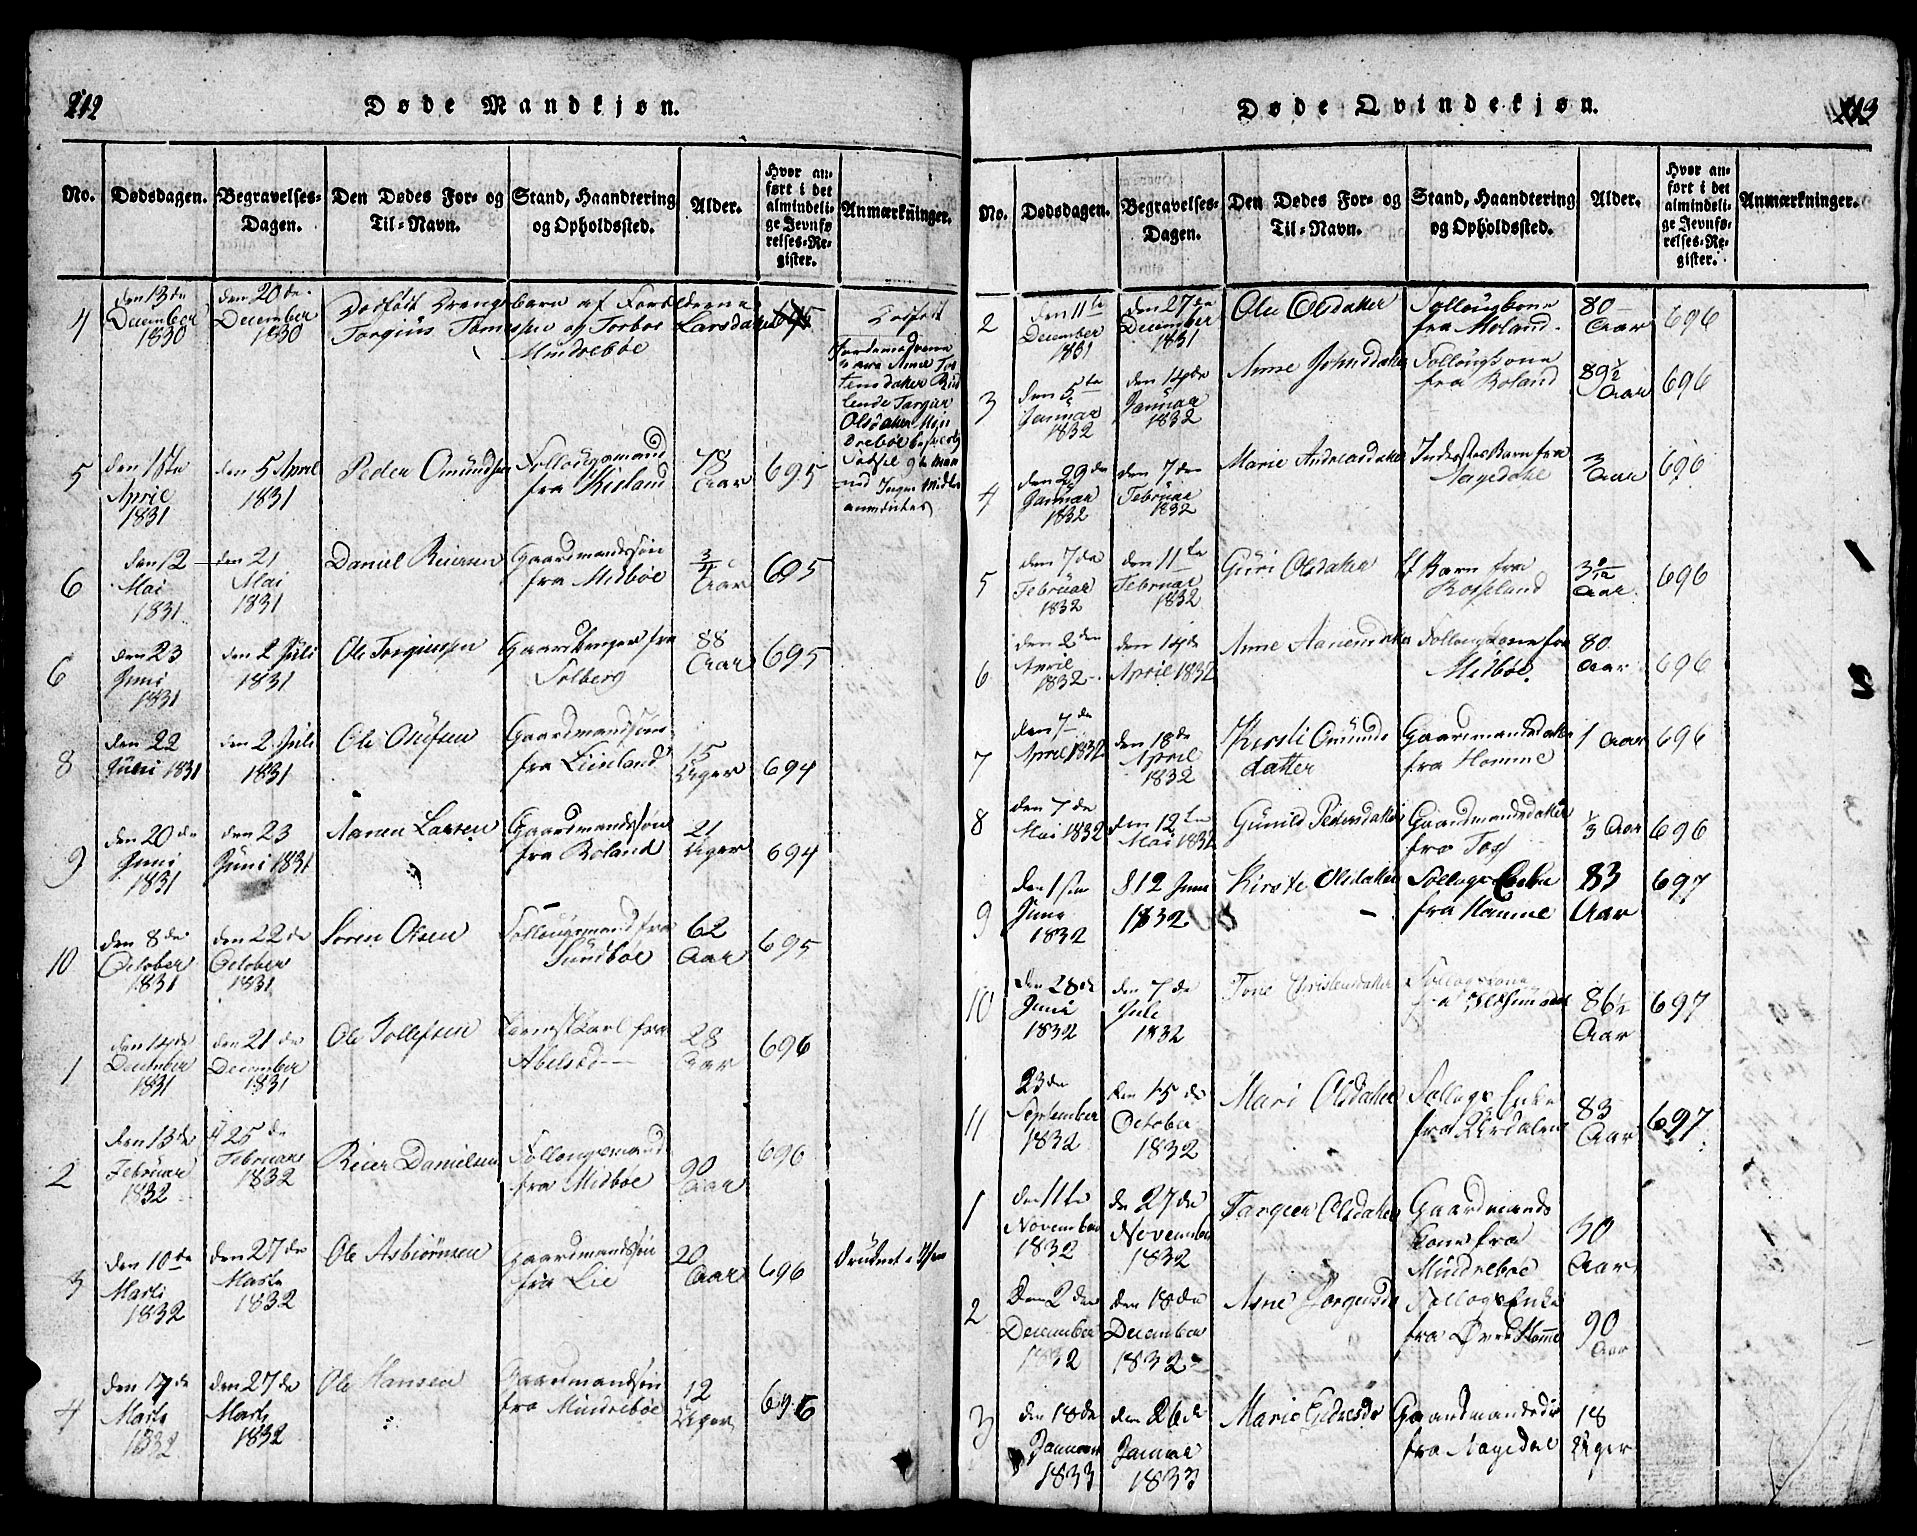 212
Døde Mandkjøn.
No.
Dødsdagen.
Begravelses-
Dagen.
Den Dødes For- og
Til-Navn.
Stand, Haandtering
og Opholdssted.
Alder.
Hvor an-
ført i det
almindeli-
ge Jevnfø-
relses-Re-
gister.
Anmærkninger.
4
den 13de
December
1830
den 20de
December
1830
Dødfødt Drengebarn af Forældrene
Torgius
og Torboe Larsdatter
Mindrebøe
Dødfødt
5
den
April
1831
den 5 April
1831
Peder Omündsen
Follougsmand
fra Risland
78
Aar
695
6
den 12
Mai
1831
den 21
Mai
1831
Daniel Reiersen
Gaardmandssøn
fra Midbøe
3/4
Aar
695
6
den 23
Juni
1831
den 2 Juli
1831
Ole Torgiussen
fra
Solberg
88
Aar
695
8
den 22
Juni 1831
den 2 Juli
1831
Ole Olüfsen
Gaardmandssøn
fra Lienland
15
Uger
694
9
den 20de
Juni
1831
den 23
Juni 1831
Aanen Larsen
Gaardmandssøn
fra Roland
21
Uger
694
10
den 8de
October
1831
den 22de
October
1831
Søren Olsen
Follougsmand fra
Sundbøe
62
Aar
695
1
den 14de
December
1831
den 21de
December
1831
Ole Tollefsen
fra
Abelsted
28
Aar
696
2
den 13de
Februar
1832
d 25de
Februar
1832
Reier Danielsen
Follougsmand
fra Midbøe
90
Aar
696
3
den 10de
Marti
1832
den 27de
Marts
1832
Ole Asbiørnsen
Gaardmandssøn
fra Lie
20
Aar
696
Druknet i
4
den 17de
Marts
1832
den 27de
Marts
1832
Ole Hansen
Gaardmandssøn
fra Mindrebøe
12
Uger
696
Døde Qvindekjøn.
213
No.
Dødsdagen.
Begravelses-
Dagen.
Den Dødes For- og
Til-Navn.
Stand, Haandtering
og Opholdssted.
Alder.
Hvor an-
ført i det
almindeli-
ge Jevnfø-
relses-Re-
gister.
Anmærkninger.
2
den 11te
December
1831
den 27de
December
1831
Olu Olsdatter
Follougkone
fra Moland
80
Aar
696
3
den 5te
Januar
1832
den 14de
Januar
1832
Anne Johnsdatter
Follougkone
fra Roland
89 1/2
Aar
696
4
den 29de
Januar
1832
den 7de
Februar
1832
Marie Andreasdatter
Barn fra
Aagedale
3
Aar
696
5
den 7de
Februar
1832
den 11te
Februar
1832
Güri Olsdatter
Barn fra
Rosseland
Aar
696
6
den 2den
April
1832
den 14de
April 1832
Anne Aanensdatter
Follougkone fra
Midbøe
80
Aar
696
7
den 7de
April 1832
den 18de
April
1832
Kirsti Omünds
datter
Gaardmandsdatter
fra Homme
1 Aar
696
8
den 7de
Mai 1832
den 12te
Mai 1832
Günild Pedersdatter
Gaardmandsdatter
fra
1/3 Aar
696
9
den 1ste
Juni
1832
d 12 Juni
1832
Kirste Olsdatter
Follogs Enke
fra Homme
83
Aar
697
10
den 28de
Juni
1832
den 7de
Juli
1832
Tone Christensdatter
Follogskone
fra
86 1/2
Aar
697
11
23de
September
1832
den 15de
October
1832
Mari Olsdatter
Follogs Enke
fra
83
Aar
697
1
den 11te
November
1832
den 27de
November
1832
Torgier Olsdatter
Gaardmands
Kone fra
Mindreboe
30
Aar
2
Den 2den
December
1832
den 18de
December
1832
Asne Jorgensd
Follogs Enke
fra Øvre Homme
90
Aar
3
den 18de
Januar
1833
den 26de
Januar
1833
Marie
Gaardmandsd
fra Aagedal
18
Uger